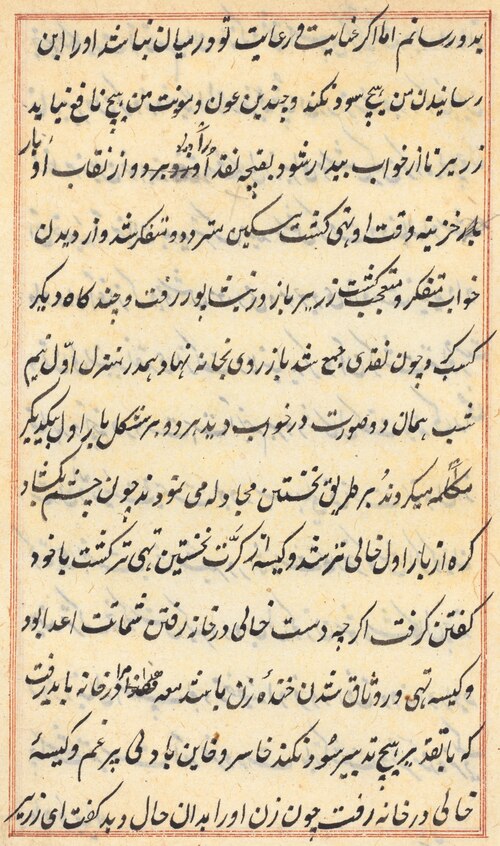 بدو رسانم اما اگر عنایت و رعایت تو در میان نباشد او را این
رسانیدن من هیچ سود نکند و چندین عون و مونت من هیچ نافع نیاید
زریر تا از خواب بیدار شود بقچه نقد او را دزد برد و از نقاب او بار
دیگر خزینه وقت او تهی گشت مسکین متردد و متفکر شد و از دیدن
خواب متفکر و متعجب گشت زریر باز در نیشاپور رفت و چند گاه دیگر
کسب کرد و چون نقدی جمع شد باز روی بخانه نهاد و همدر منزل اول نیم
شب همان دو صورت در خواب دید هر دو بر شکل بار اول یکدیگر
مکالمه میکردند بر طریق نخستین مجادله می نمودند چون چشم بگشاد
گره از بار اول خالی تر شد و کیسه از کرت نخستین تهی تر گشت با خود
گفتن گرفت اگرچه دست خالی در خانه رفتن شماتت اعدا بود
و کیسه تهی در وثاق شدن خنده زن باشد مرا در خانه باید رفت
که با تقدیر هیچ تدبیر سود نکند خاسر و خاین با دلی پر غم و کیسهٔ
خالی در خانه رفت چون زن او را بدان حال دید گفت ای زریر